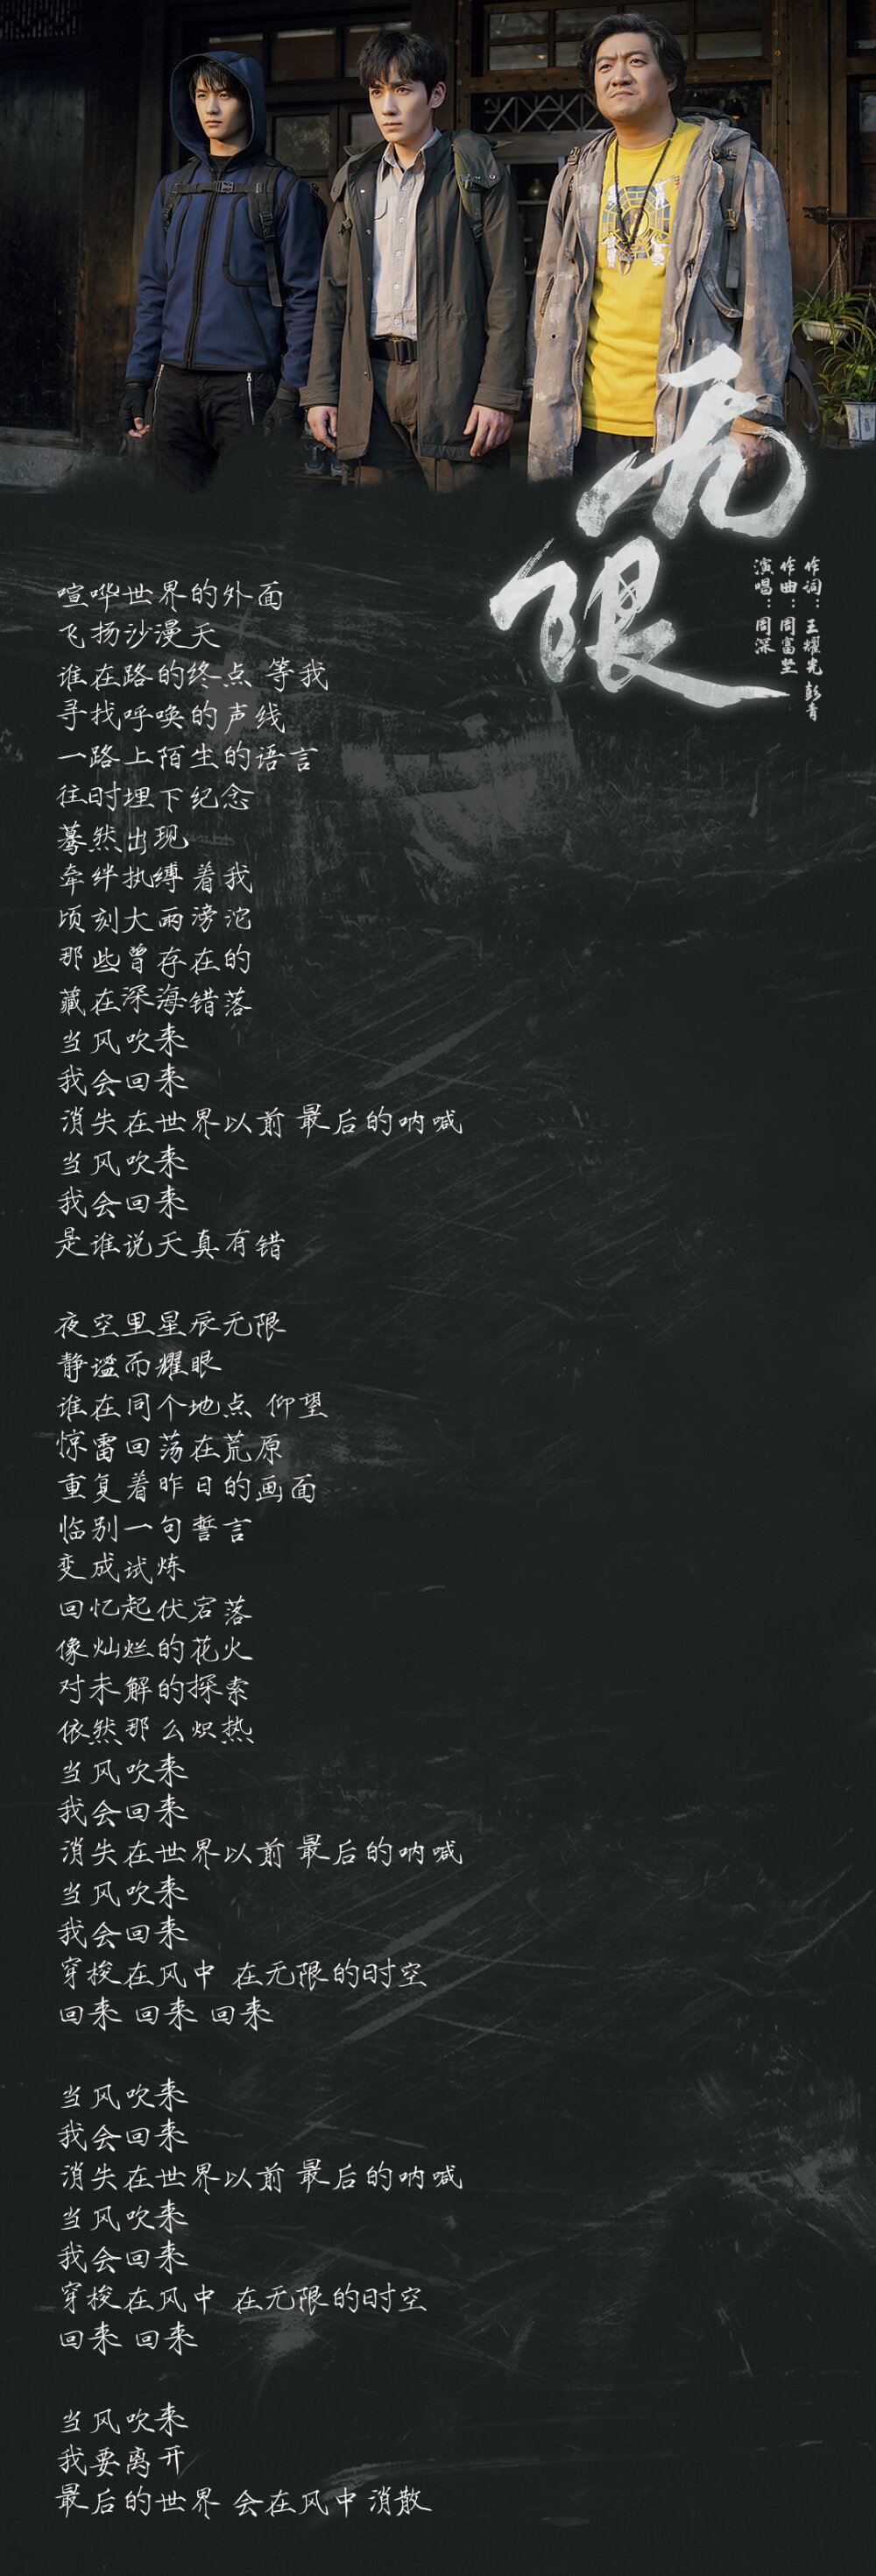 无限
作词：王耀光 彭青
作曲：周富坚
演唱：周深
喧哗世界的外面
飞扬沙漫天
谁在路的终点 等我
寻找呼唤的声线
一路上陌生的语言
往时埋下纪念
蓦然出现
牵绊执缚着我
顷刻大雨滂沱
那些曾存在的
藏在深海错落
当风吹来
我会回来
消失在世界以前 最后的呐喊
当风吹来
我会回来
是谁说天真有错
夜空里星辰无限
静谧而耀眼
谁在同个地点 仰望
惊雷回荡在荒原
重复着昨日的画面
临别一句誓言
变成试炼
回忆起伏宕落
像灿烂的花火
对未解的探索
依然那么炽热
当风吹来
我会回来
消失在世界以前 最后的呐喊
当风吹来
我会回来
穿梭在风中 在无限的时空
回来 回来 回来
当风吹来
我会回来
消失在世界以前 最后的呐喊
当风吹来
我会回来
穿梭在风中 在无限的时空
回来 回来
当风吹来
我要离开
最后的世界 会在风中消散